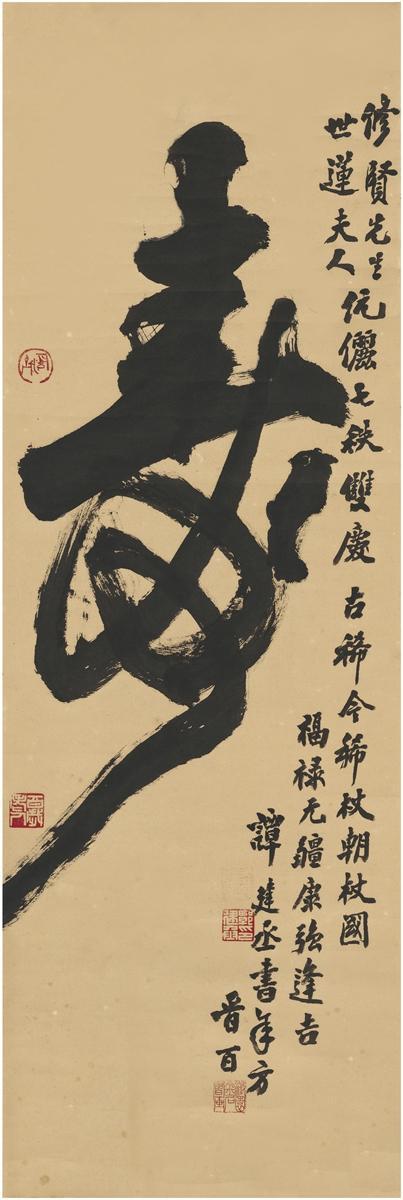 壽
修賢先生
世蓮夫人
伉儷七秩雙慶古稀今稀杖朝杖國
福祿无疆康強逢吉
譚建丞書年方
晉百